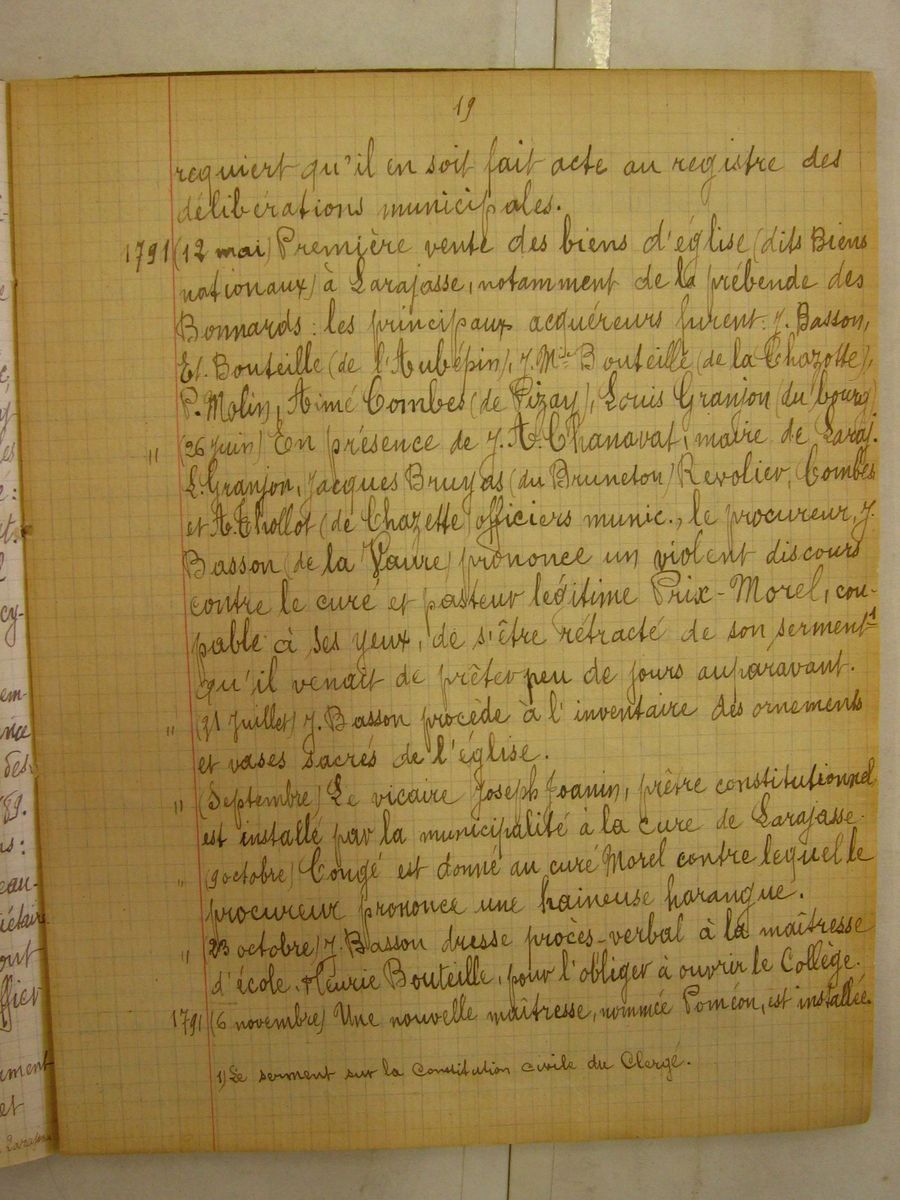 19
requiert qu'il en soit fait acte au registre des
délibérations municipales.
1791 (12 mai) Première vente des biens d'église (dits Biens
nationaux) à Larajasse, notamment de la prébende des
Bonnards : les principaux acquéreurs furent : J. Basson,
Et. Bouteille (de l'Aubépin), J. Mie Bouteille (de la Chazotte),
P. Molin, Aimé Combes (de Pizay), Louis Granjon (du bourg)
" (26 Juin) En présence de J. A. Chanavat, maire de Laraj.
L. Granjon, Jacques Bruyas (du Bruneton) Revolier, Combes
et A. Thollot (de Chazette) officiers munic., le procureur, J.
Basson (de la Vaure) prononce un violent discours
contre le curé et pasteur légitime Prix-Morel, cou-
pable à ses yeux, de s'être rétracté de son serment 1
qu'il venait de prêter peu de jours auparavant.
" (31 Juillet) J. Basson procède à l'inventaire des ornements
et vases sacrés de l'église.
" (Septembre) Le vicaire Joseph Joanin, prêtre constitutionnel,
est installé par la municipalité à la cure de Larajasse.
" (9 octobre) Congé est donné au curé Morel contre lequel le
procureur prononce une haineuse harangue.
" (23 octobre) J. Basson dresse procès-verbal à la maîtresse
d'école, Fleurie Bouteille, pour l'obliger à ouvrir le Collège.
1791 (6 novembre) Une nouvelle maîtresse, nommée Poméon, est installée.
1) Le serment sur la Constitution civile du Clergé.